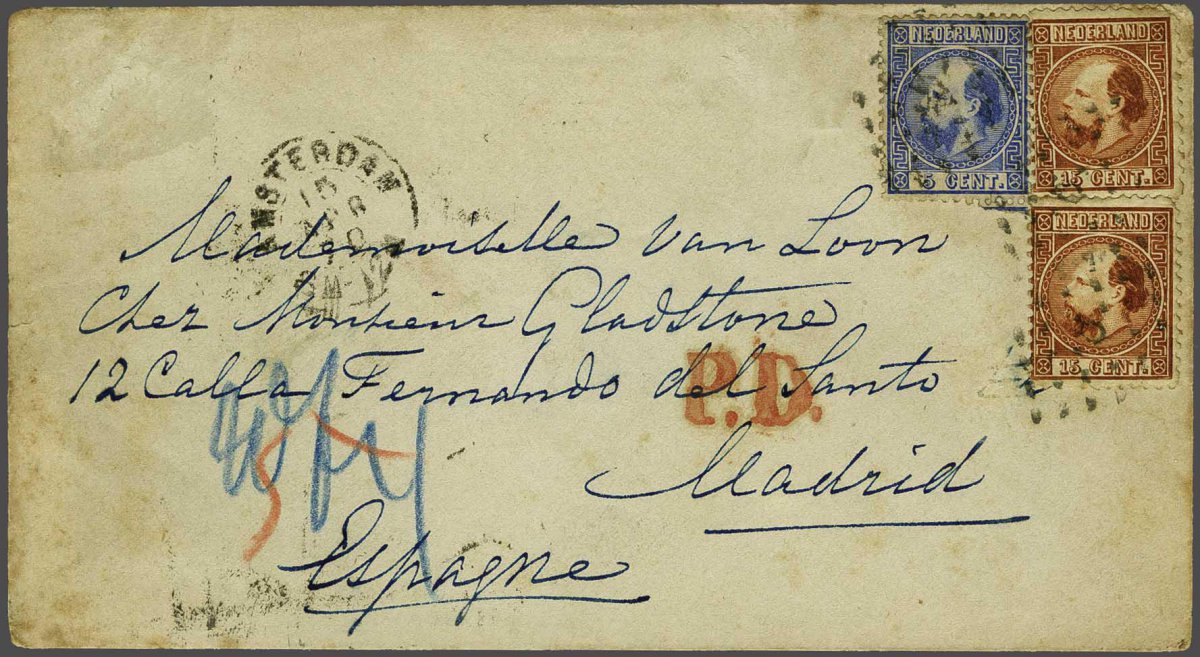 NEDERLAND
5 CENT.
NEDERLAND
15 CENT.
NEDERLAND
15 CENT.
AMSTERDAM
Mademoiselle van Loon
Chez Monsieur Gladstone
12 Calla Fernando del Santo
P.D.
Madrid
Espagne